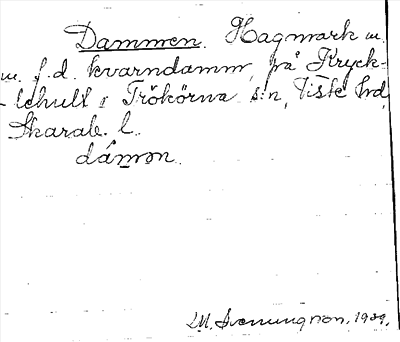 Dammen. Hagmark m.
m. f.d. kvarndamm, på Kryck-
lehult i Trökörna s:n, Viste hd,
Skarab. l.
dámǝn.
M. Svenungson. 1939.